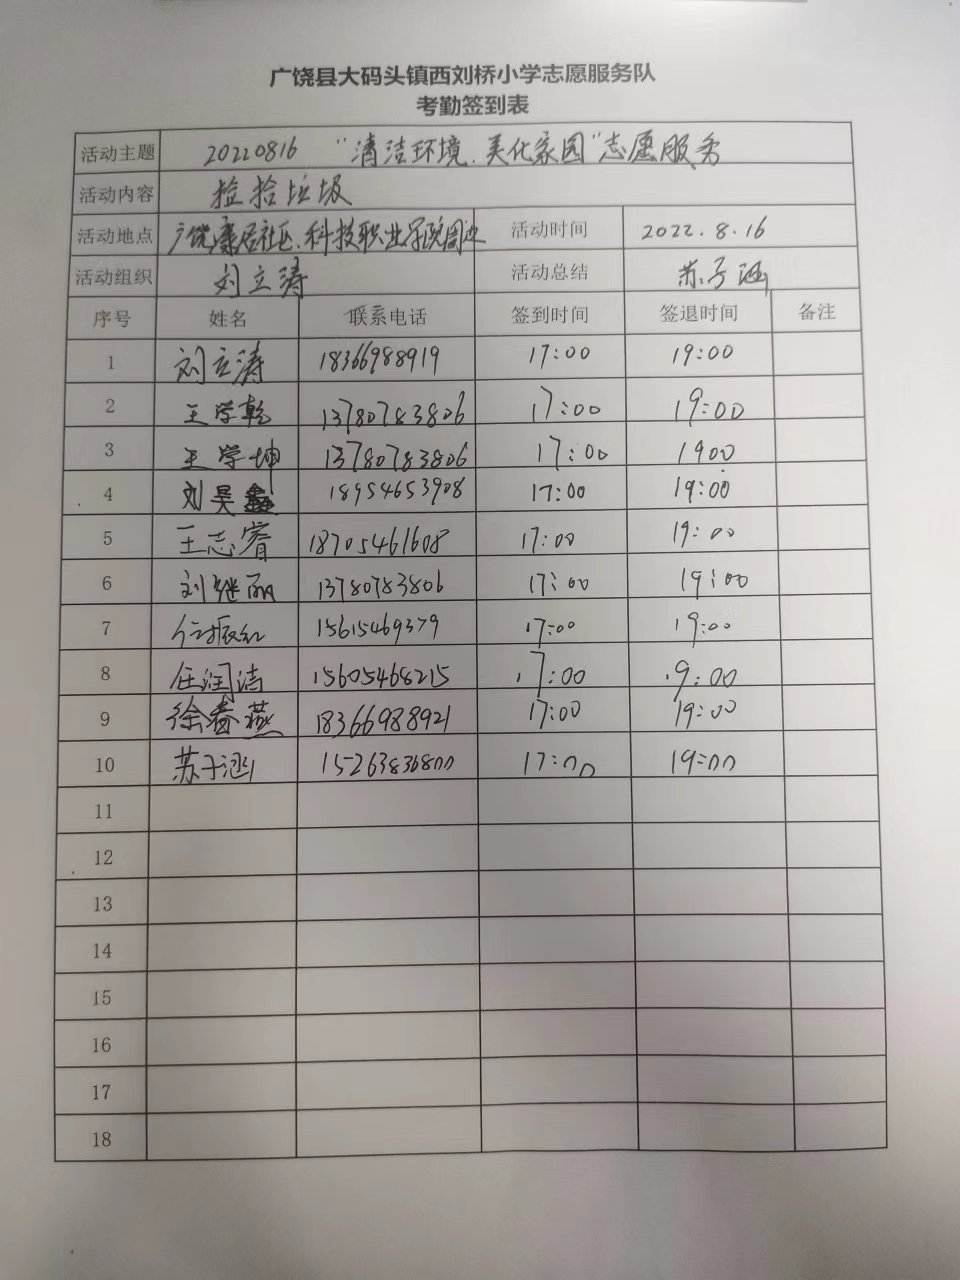 广饶县大码头镇西刘桥小学志愿服务队
考勤签到表
活动主题 20220816 “清洁环境.美化家园”志愿服务
活动内容 捡拾垃圾
活动地点 广饶康居社区、科技职业学院周边 活动时间 2022.8.16
活动组织 刘立涛 活动总结 苏子涵
序号 姓名 联系电话 签到时间 签退时间 备注
1 刘立涛 18366988919 17:00 19:00
2 王学乾 13780783806 17:00 19:00
3 王学坤 13780783806 17:00 1900
4 刘昊鑫 18954653908 17:00 19:00
5 王志睿 18705461608 17:00 19:00
6 刘继丽 13780783806 17:00 19:00
7 15615469379 17:00 19:00
8 任润洁 15605468215 17:00 19:00
9 徐春燕 18366988921 17:00 19:00
10 苏子涵 15263836800 17:00 19:00
11
12
13
14
15
16
17
18